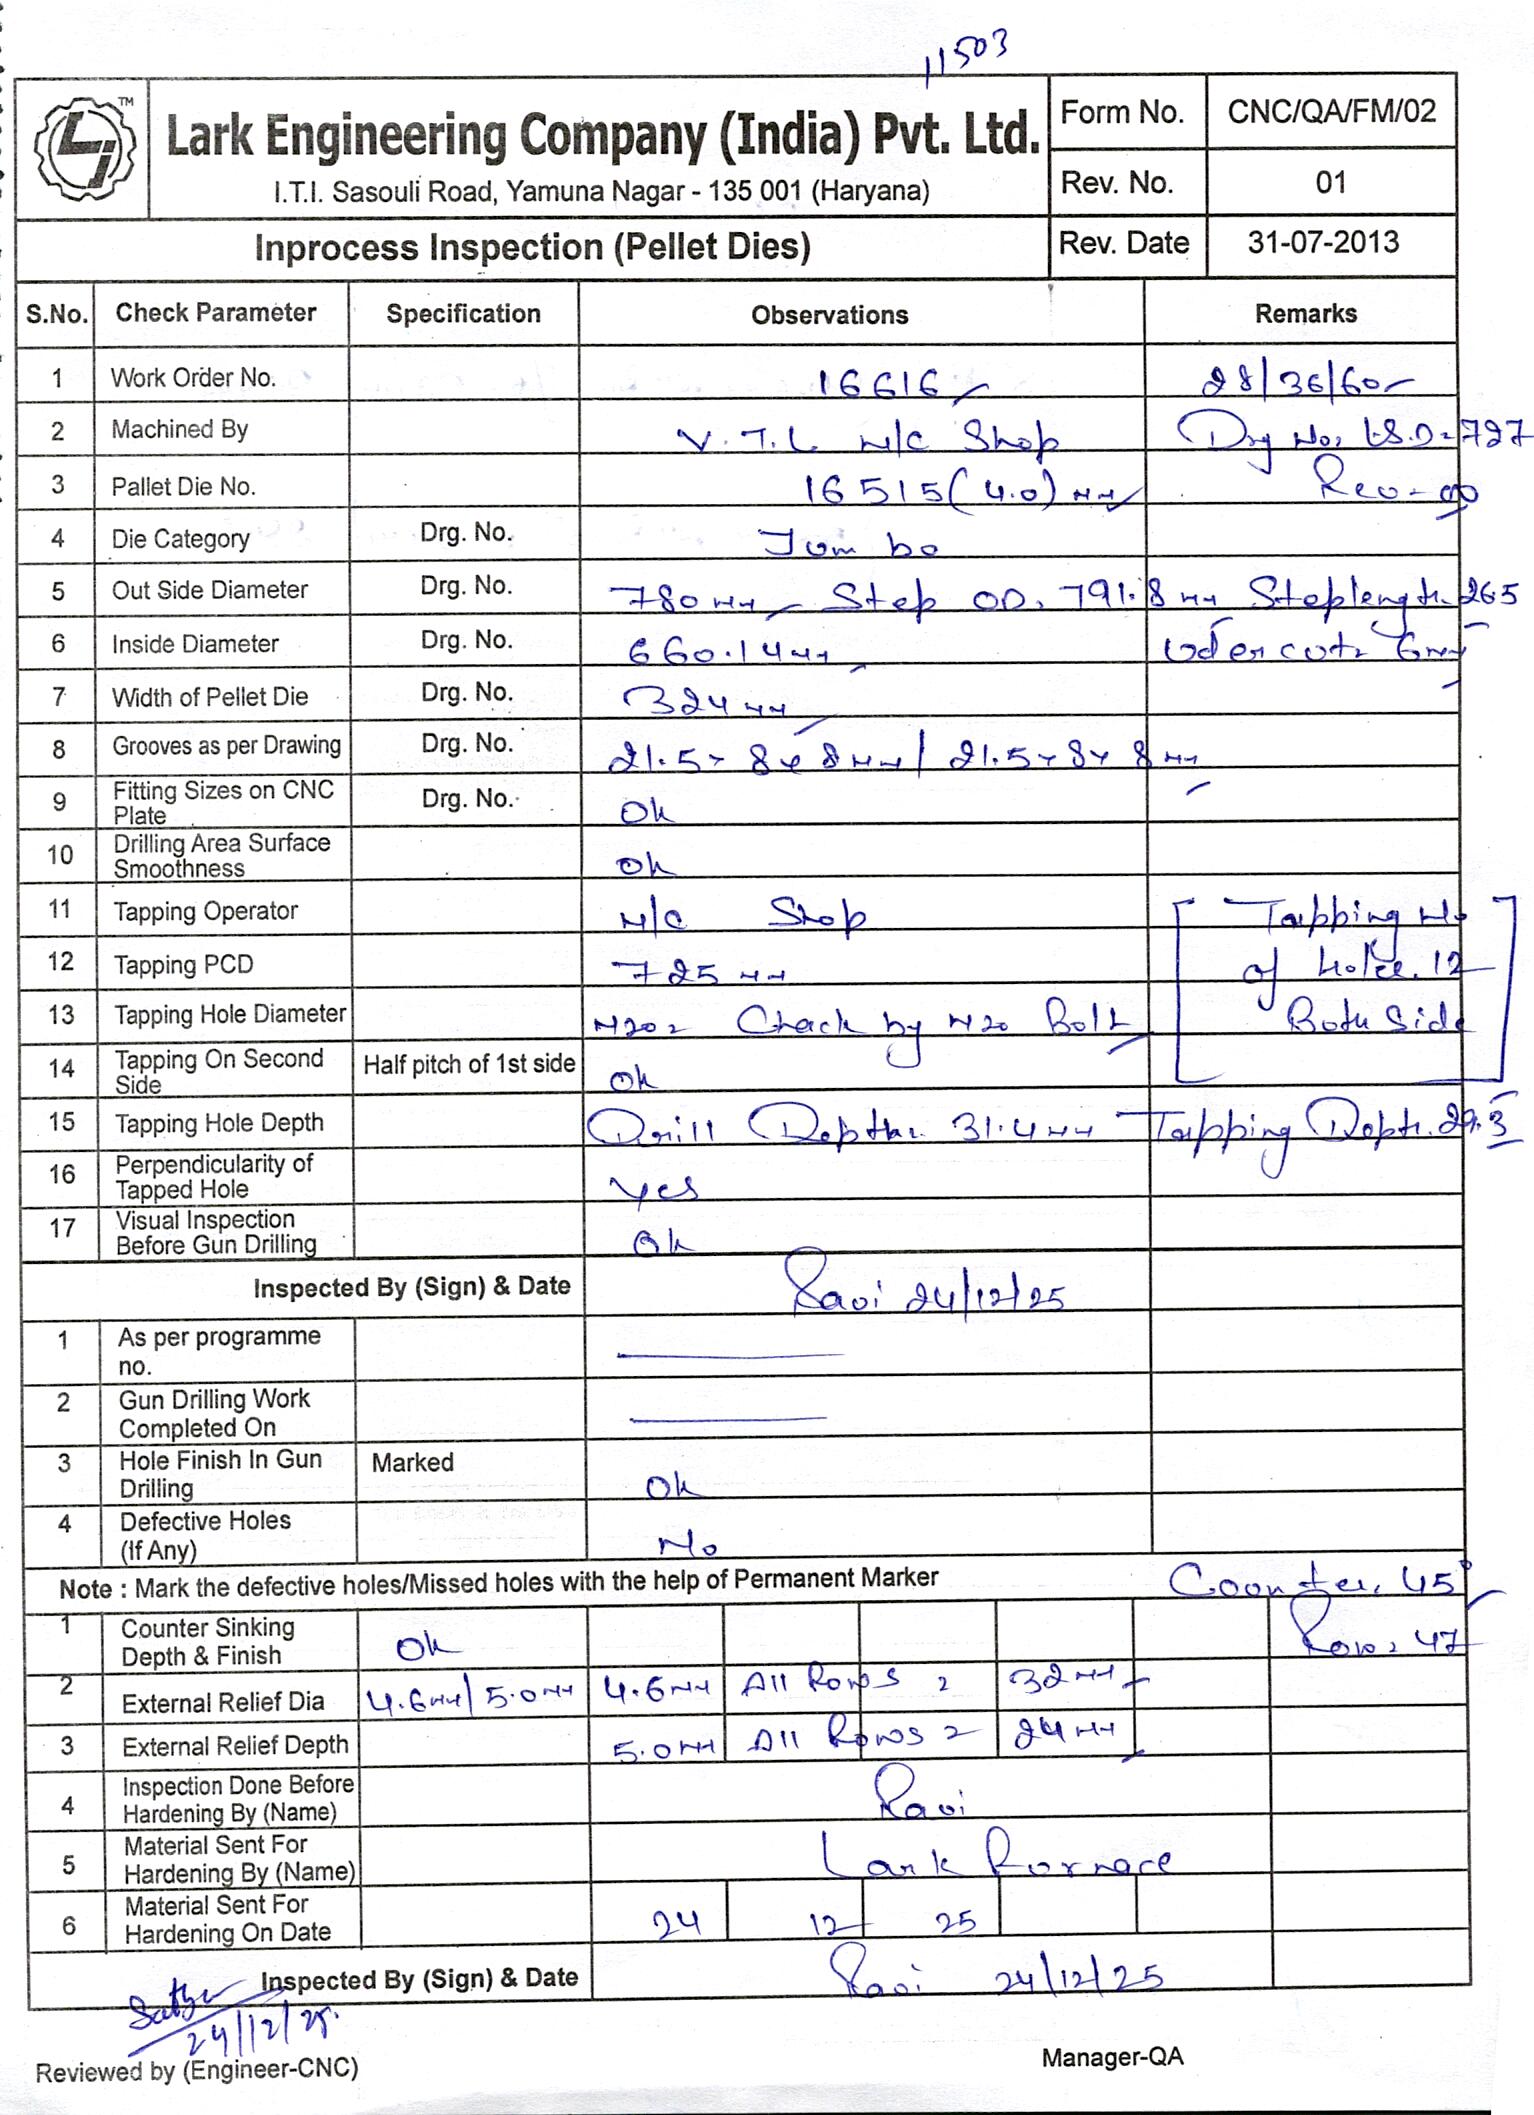 11503
TM
Lark Engineering Company (India) Pvt. Ltd.
I.T.I. Sasouli Road, Yamuna Nagar - 135 001 (Haryana)
Form No. CNC/QA/FM/02
Rev. No. 01
Inprocess Inspection (Pellet Dies) Rev. Date 31-07-2013
S.No. Check Parameter Specification Observations Remarks
1 Work Order No. 16616 28/36/60
2 Machined By V.T.L M/C Shop Drg No. LSD-727
3 Pallet Die No. 16515 (4.0) mm Rev-00
4 Die Category Drg. No. Jumbo
5 Out Side Diameter Drg. No. 780 mm Step OD. 791.8 mm Step length. 26.5
6 Inside Diameter Drg. No. 660.14 mm 6mm
7 Width of Pellet Die Drg. No. 324 mm
8 Grooves as per Drawing Drg. No. 21.5 x 8 x 8 mm / 21.5 x 8 x 8 mm
9 Fitting Sizes on CNC Plate Drg. No. Ok
10 Drilling Area Surface Smoothness Ok
11 Tapping Operator M/C Shop Tapping No
12 Tapping PCD 725 mm of Hole. 12
13 Tapping Hole Diameter M20 = Chack by M20 Bolt Both Side
14 Tapping On Second Side Half pitch of 1st side Ok
15 Tapping Hole Depth Drill Depth. 31.4 mm Tapping Depth. 29.3
16 Perpendicularity of Tapped Hole Yes
17 Visual Inspection Before Gun Drilling Ok
Inspected By (Sign) & Date Ravi 24/12/25
1 As per programme no.
2 Gun Drilling Work Completed On
3 Hole Finish In Gun Drilling Marked Ok
4 Defective Holes (If Any) No
Note : Mark the defective holes/Missed holes with the help of Permanent Marker Counter. 45°
1 Counter Sinking Depth & Finish Ok Row = 47
2 External Relief Dia 4.6mm/5.0mm 4.6mm All Rows = 32mm
3 External Relief Depth 5.0mm All Rows = 24mm
4 Inspection Done Before Hardening By (Name) Ravi
5 Material Sent For Hardening By (Name) Lark Furnace
6 Material Sent For Hardening On Date 24 12 25
Inspected By (Sign) & Date Ravi 24/12/25
24/12/25.
Reviewed by (Engineer-CNC) Manager-QA